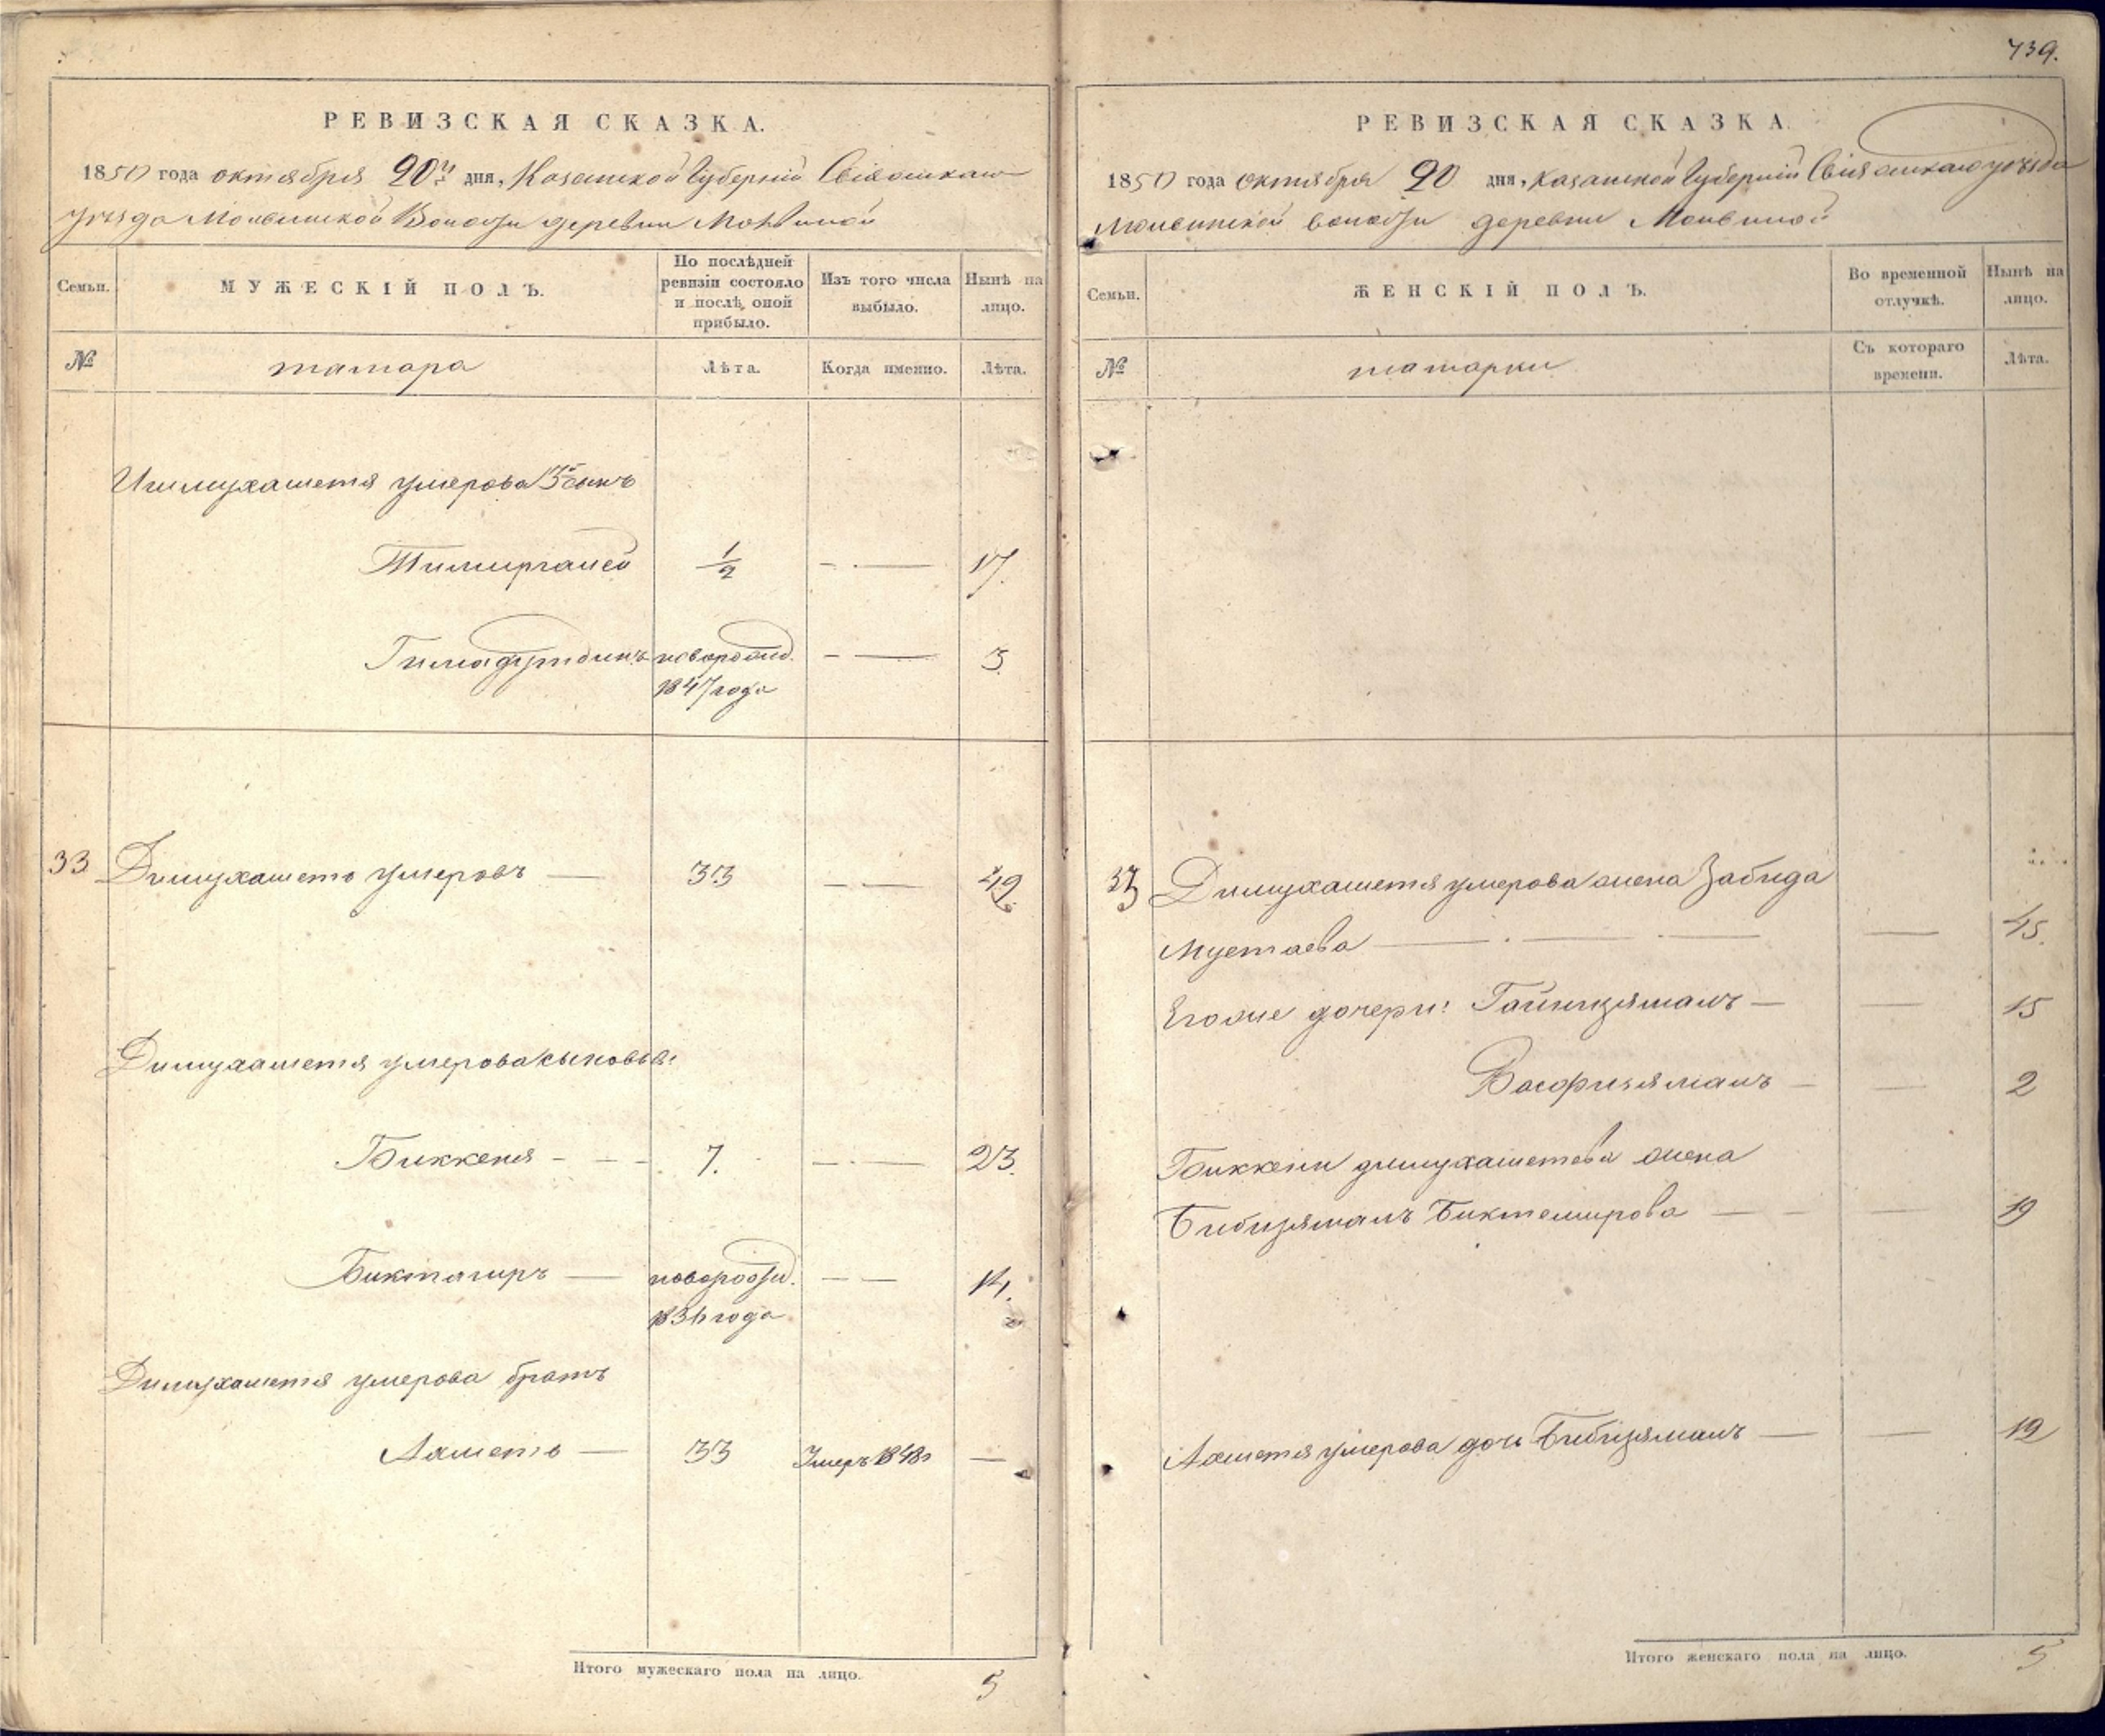 739.
РЕВИЗСКАЯ СКАЗКА.
1850 года октября 20го дня, Казанской Губерніи Свіяжскаго
уѣзда Молвинской Волости деревни Молвиной
Семьи.
МУЖЕСКІЙ ПОЛЪ.
По послѣдней ревизіи состояло и послѣ оной прибыло.
Изъ того числа выбыло.
Нынѣ на лицо.
№
татара
Лѣта.
Когда именно.
Лѣта.
умерова 3 сынъ
Тимиргалей 1/2 17.
Гимадутдинъ новорожд. 3
1847 года
33 Димухаметъ умеровъ 33 49
Димухаметя умерова сыновья:
Биккеня 7. 23.
Биктагиръ новорожд. 14.
1836 года
Димухаметя умерова братъ
Ахметъ 33 Умеръ 1848
Итого мужескаго пола на лицо. 5
РЕВИЗСКАЯ СКАЗКА
1850 года октября 20 дня, Казанской Губерніи Свіяжскаго уѣзда
Молвинской волости деревни Молвиной
Семьи.
ЖЕНСКІЙ ПОЛЪ.
Во временной отлучкѣ.
Нынѣ на лицо.
№
татарки
Съ котораго времени.
Лѣта.
33 Димухаметя умерова жена Забида
Мустаева 45.
Его же дочери: Гайнизямалъ 15
Васфизямалъ 2
Биккени димухаметева жена
Бибизямалъ Биктемирова 19
Ахметя умерова дочь Бибизямалъ 12
Итого женскаго пола на лицо. 5